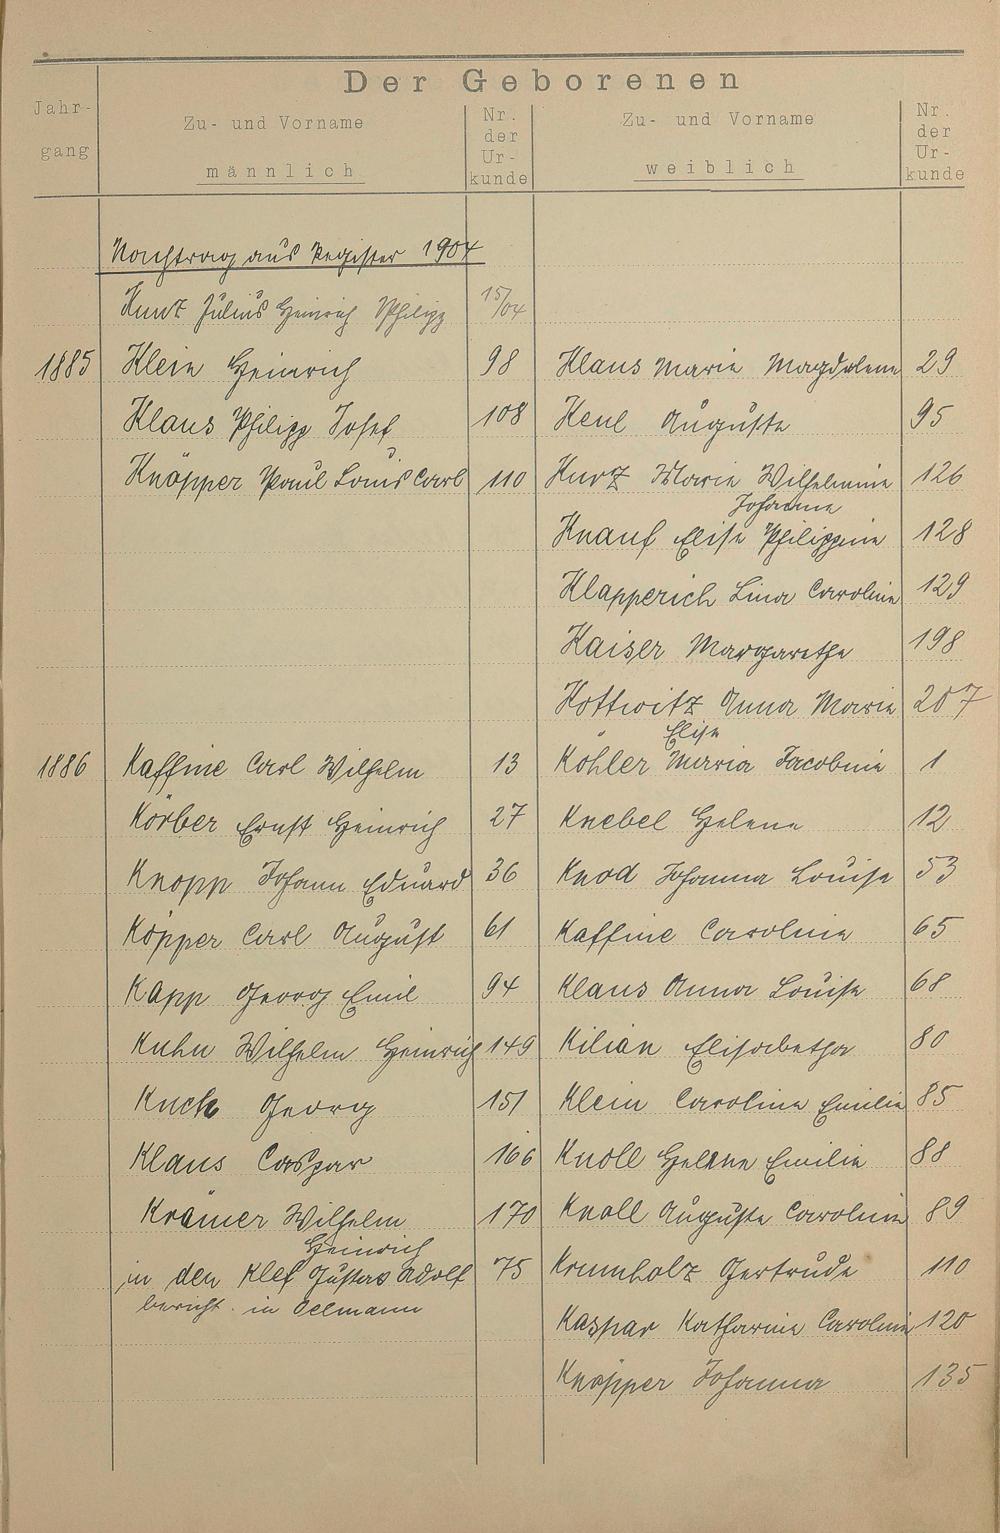 Der Geborenen
Jahr-
gang
Zu- und Vorname
männlich
Nr.
der
Ur-
kunde
Zu- und Vorname
weiblich
Nr.
der
Ur-
kunde
Nachtrag aus Register 1904
Kunz Julius Heinrich Philipp 15/04
1885 Klein Heinrich 98 Klaus Marie Magdalene 29
Klaus Philipp Josef 108 Keul Auguste 95
Knöpper Paul Louis Carl 110 Kurz Marie Wilhelmine 126
Johanne
Knauf Elise Philippine 128
Klapperich Lina Caroline 129
Kaiser Margarethe 198
Kottwitz Anna Marie 207
Elise
1886 Kaffine Carl Wilhelm 13 Köhler Maria Jacobine 1
Körber Ernst Heinrich 27 Knebel Helene 12
Knopp Johann Eduard 36 Knod Johanna Louise 53
Köpper Carl August 61 Kaffine Caroline 65
Kapp Georg Emil 94 Klaus Anna Louise 68
Kuhn Wilhelm Heinrich 149 Kilian Elisabetha 80
Kuck Georg 151 Klein Caroline Emilie 85
Klaus Caspar 166 Knoll Helene Emilie 88
Krämer Wilhelm 170 Knoll Auguste Caroline 89
Heinrich
in den Klef Gustav Adolf 75 Krumholz Gertrude 110
bericht. in Oelmann
Kaspar Katharine Caroline 120
Knöpper Johanna 135